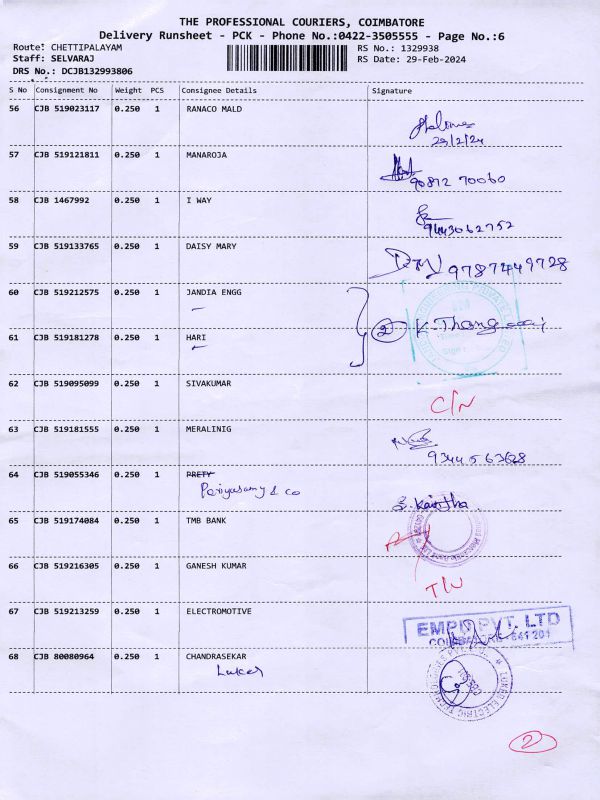 THE PROFESSIONAL COURIERS, COIMBATORE
Delivery Runsheet - PCK - Phone No.:0422-3505555 - Page No.:6
Route: CHETTIPALAYAM RS No.: 1329938
Staff: SELVARAJ RS Date: 29-Feb-2024
DRS No.: DCJB132993806
S No Consignment No Weight PCS Consignee Details Signature
56 CJB 519023117 0.250 1 RANACO MALD
29/2/24
57 CJB 519121811 0.250 1 MANAROJA
90872 70060
58 CJB 1467992 0.250 1 I WAY
9443062752
59 CJB 519133765 0.250 1 DAISY MARY
9787449728
60 CJB 519212575 0.250 1 JANDIA ENGG
2 K. Thangaraj
61 CJB 519181278 0.250 1 HARI
62 CJB 519095099 0.250 1 SIVAKUMAR
C/N
63 CJB 519181555 0.250 1 MERALINIG
9344563628
64 CJB 519055346 0.250 1 PRETY
Periyasamy & co
65 CJB 519174084 0.250 1 TMB BANK
66 CJB 519216305 0.250 1 GANESH KUMAR
67 CJB 519213259 0.250 1 ELECTROMOTIVE
PVT. LTD
641 201
68 CJB 80080964 0.250 1 CHANDRASEKAR
Lukas
2